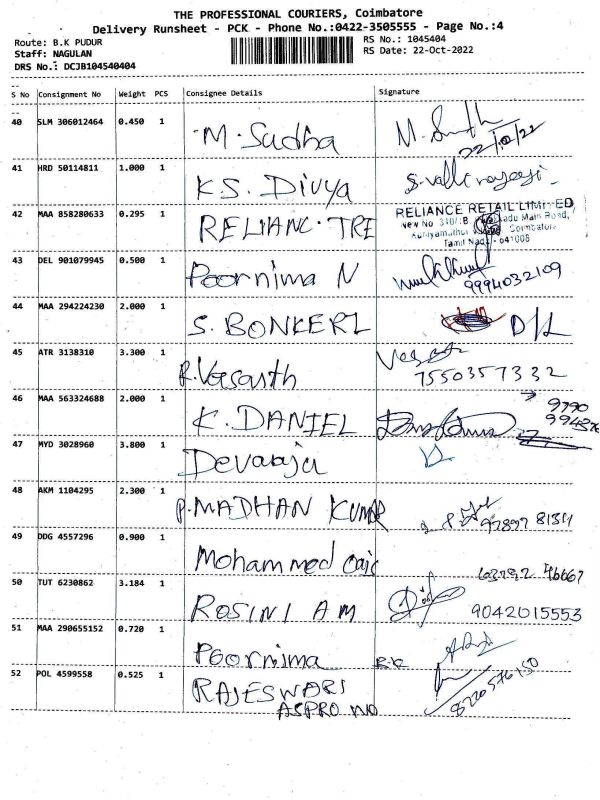 THE PROFESSIONAL COURIERS, Coimbatore
Delivery Runsheet - PCK - Phone No.:0422-3505555 - Page No.:4
Route: B.K PUDUR RS No.: 1045404
Staff: NAGULAN RS Date: 22-Oct-2022
DRS No.: DCJB104540404
S No Consignment No Weight PCS Consignee Details Signature
40 SLM 306012464 0.450 1 M. Sudha
22/10/22
41 HRD 50114811 1.000 1 K.S. Divya
42 MAA 858280633 0.295 1 RELIANC. TRE RELIANCE RETAIL LIMITED
Main Road,
Coimbatore
Tamil Nadu - 641008
43 DEL 901079945 0.500 1 Poornima N
9994032109
44 MAA 294224230 2.000 1 S. BONKERZ D/L
45 ATR 3138310 3.300 1 R. Vasanth
7550357332
46 MAA 563324688 2.000 1 K. DANIEL
47 MYD 3028960 3.800 1 Devaraju
48 AKM 1104295 2.300 1 P. MADHAN KUMAR
49 DDG 4557296 0.900 1 Mohammed
50 TUT 6230862 3.184 1 ROSINI A M 9042015553
51 MAA 290655152 0.720 1 Poornima R.K
52 POL 4599558 0.525 1 RAJESWARI
ASPRO NO